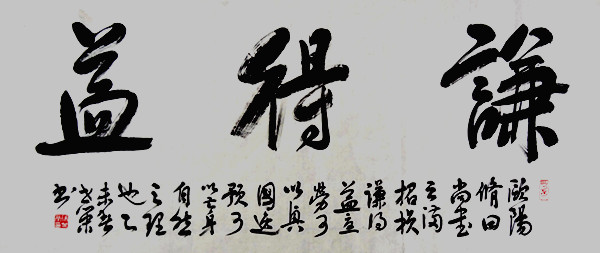 謙得益
歐陽
脩曰
尚書
云滿
招損
謙得
益憂
勞可
以興
國逸
豫可
以亡身
自然
之理
也乙
未春
书